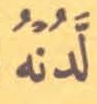 لَّدُنْهُ